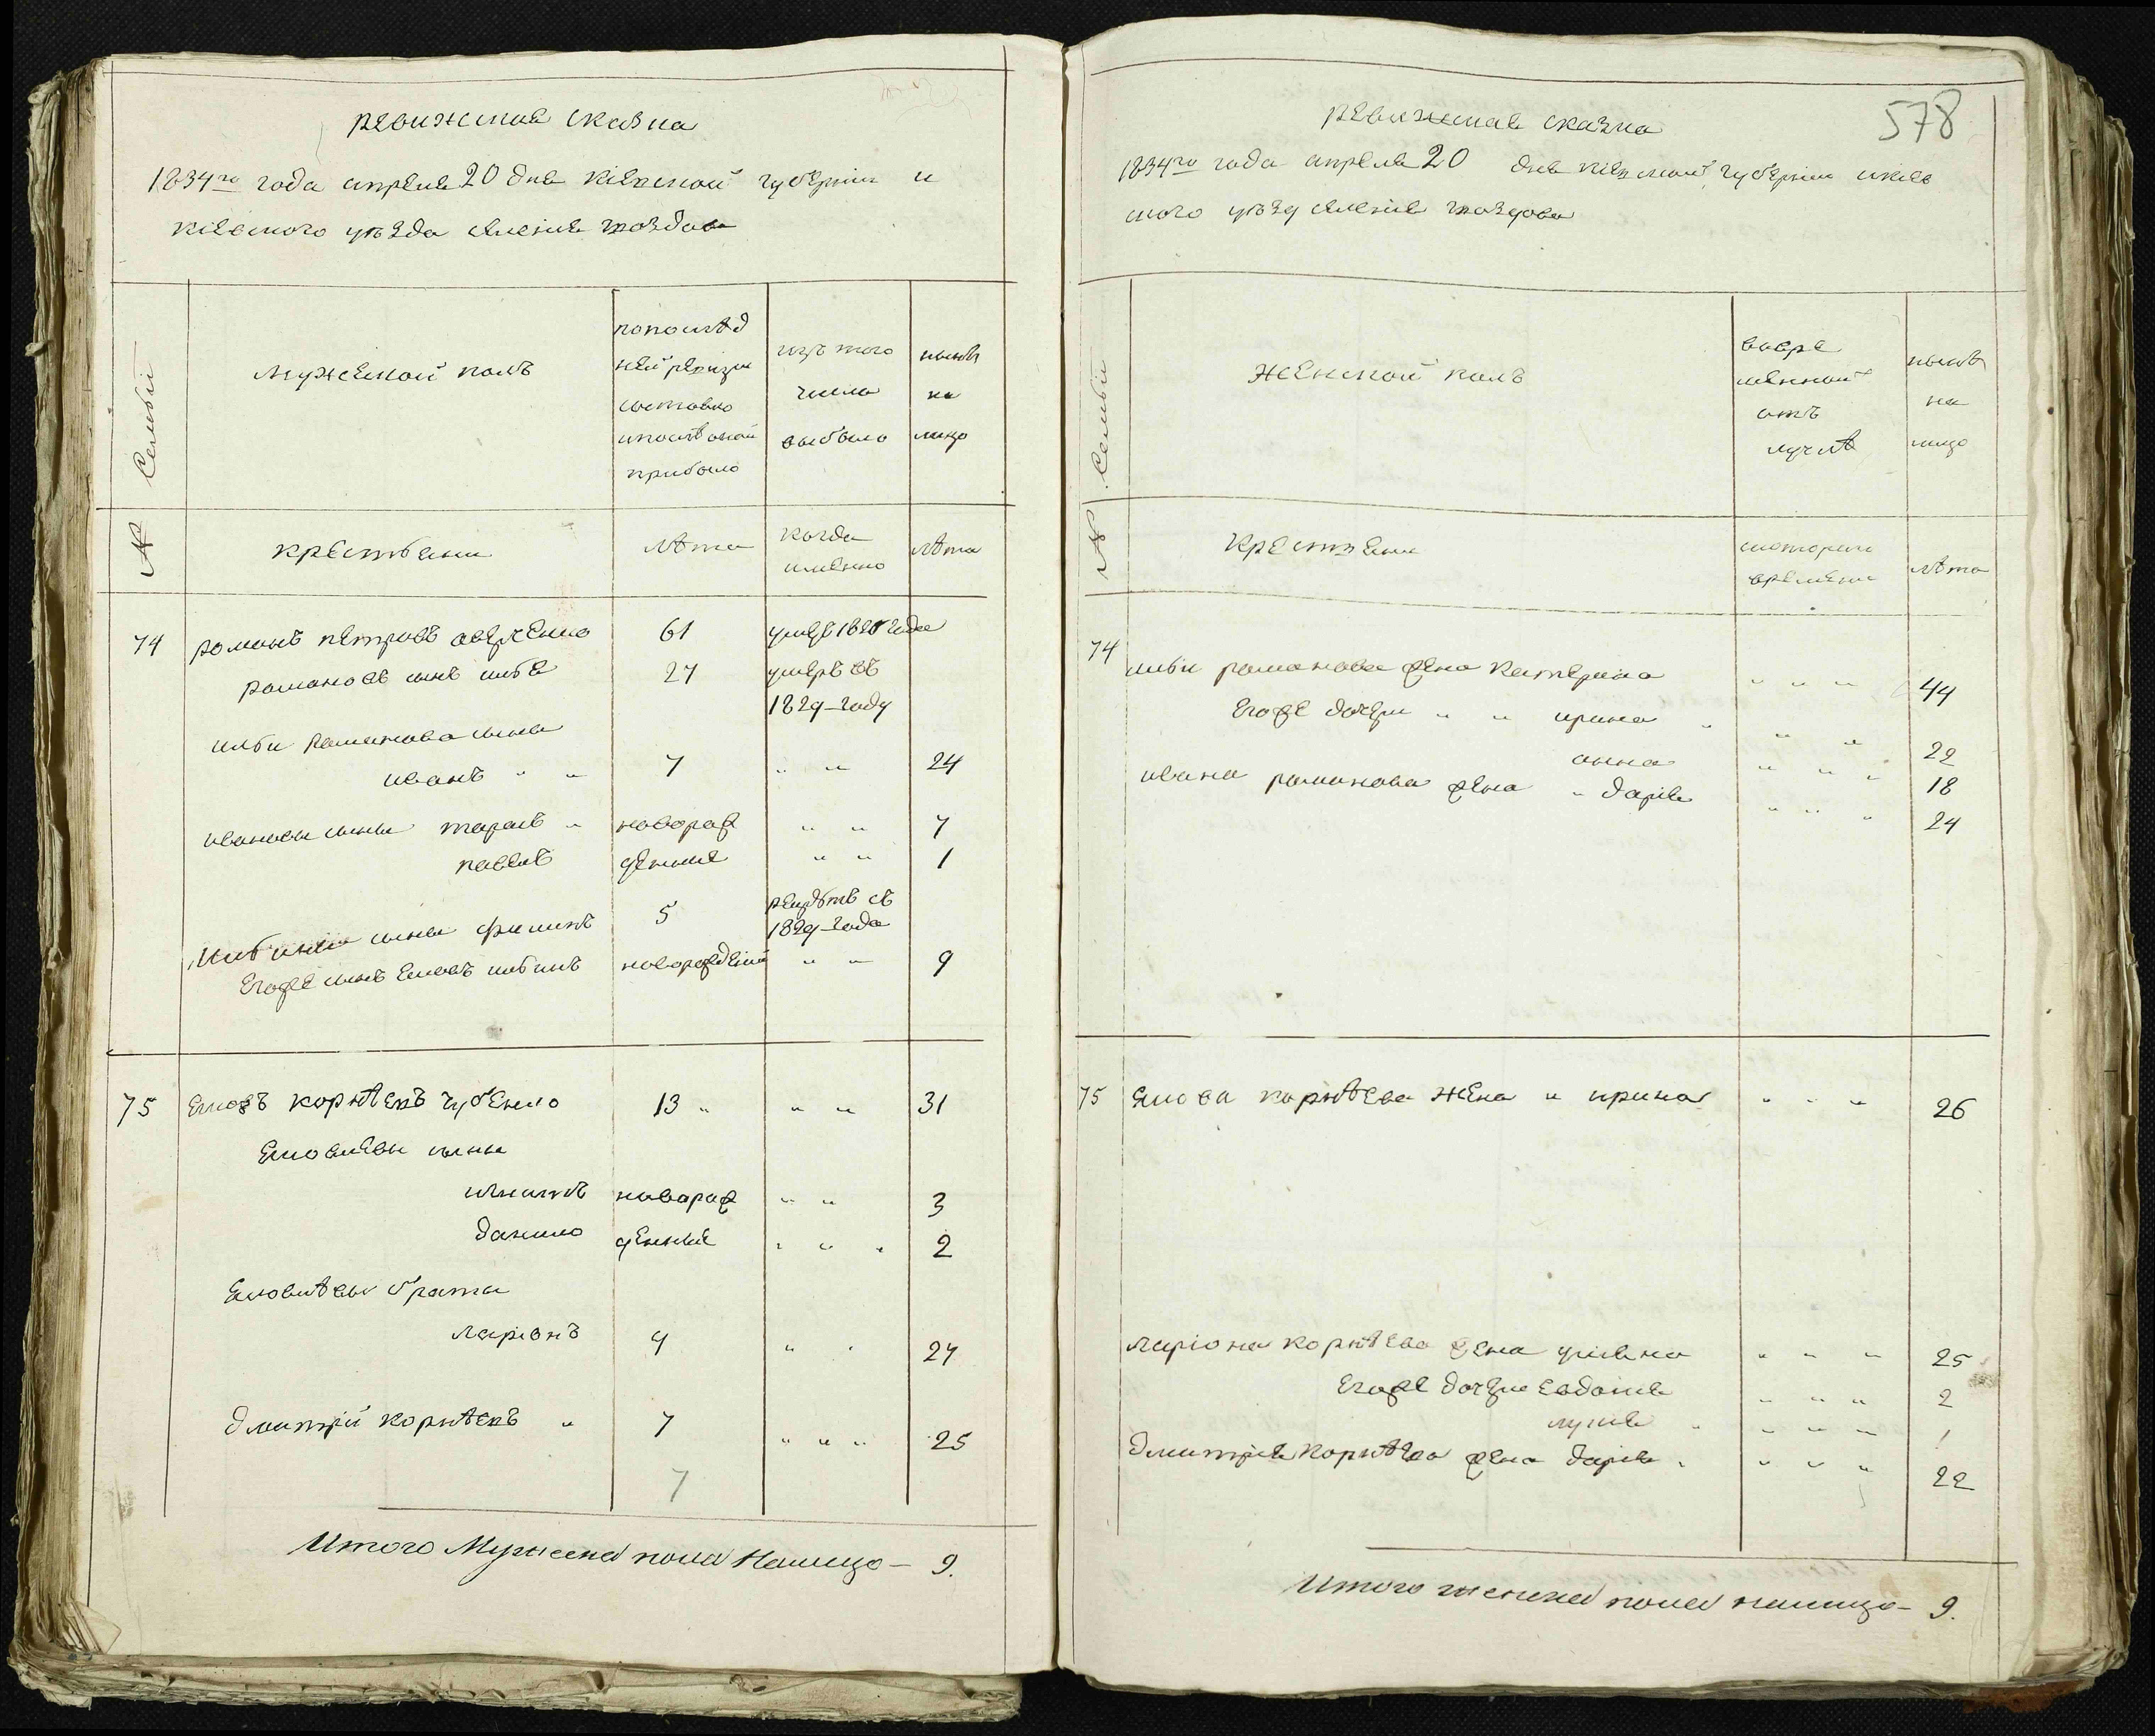 ревижская сказка
1834го года апреля 20 дня кіевской губерніи и
кіевского уѣзда селенія гвоздова
Семьи
мужеской полъ
попослѣд
ней ревизіи
состояло
ипослѣ оной
прибыло
изъ того
числа
выбыло
нынѣ
на
лицо
№
крестьяни
лѣта
когда
именно
лѣта
74 романъ петровъ 61 умеръ 182 года
романовъ сынъ илья 27 умеръ въ
1829 году
ильи романова сына
иванъ " " 7 " " 24
ивановы сыны тарасъ " новорож " " 7
павелъ денные " " 1
сыны филипъ 5 съ
1829 года
Егоже сынъ новорожденй " " 9
75 корнѣевъ чубенко 13 " " " 31
сыны
игнатъ новорож " " 3
данило денные " " " 2
браты
ларіонъ 9 " " 27
дмитрій корнѣевъ " 7 " " " 25
7
Итого Мужеска пола Налицо — 9.
578
ревижская сказка
1834го года апреля 20 дня кіевской губерніи икіев
ского уѣзду селенія гвоздова
Семьи
женской полъ
вовре
менной
отъ
лучкѣ
нынѣ
на
лицо
№
Крестьяни
скоторого
времени
лѣта
74 ильи романова жена катерина " " " 44
Егоже дочери " " ирина " " " 22
анна " " " 18
ивана романова жена " дарія " " " 24
75 корнѣева жена " ирина " " " 26
ларіона корнѣева жена уліяна " " " 25
Егоже дочери Евдокія " " " 2
" " " " 1
дмитрія корнѣева жена дарія " " " " 22
Итого женска пола налицо — 9.